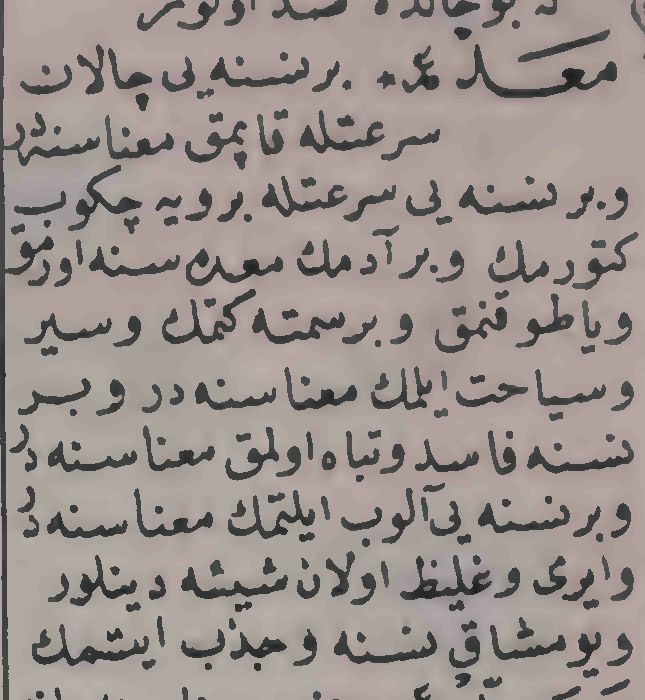 معد عم بر نسنه یی چالان
سرعتله قاپمق معناسنه در
و بر نسنه یی سرعتله بر ویه چکوب
کتورمك و بر آدمك معده سنه اورمق
ویا طوقنمق و بر سمته کتمك و سیر
و سیاحت ایلمك معناسنه در و بر
نسنه فاسد و تباه اولمق معناسنه در
و بر نسنه یی آلوب ایلتمك معناسنه در
و ایری و غلیظ اولان شیئه دینلور
و یومشاق نسنه و جذب ایتمك